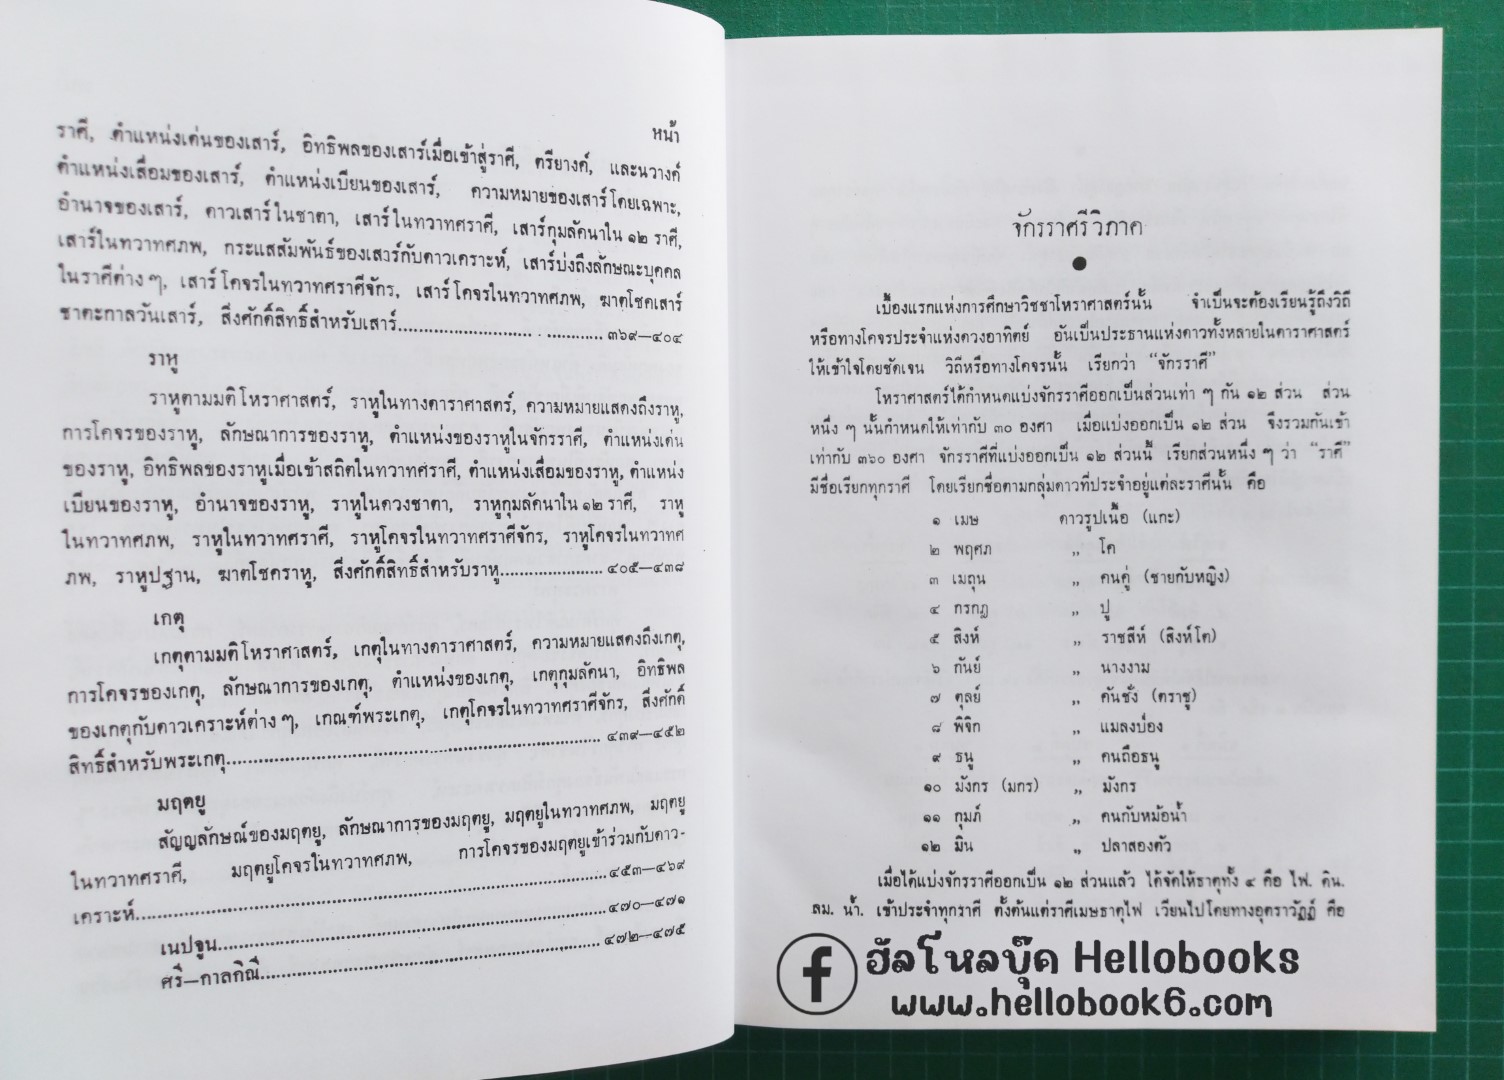 หน้า
ราศี, ตำแหน่งเด่นของเสาร์, อิทธิพลของเสาร์เมื่อเข้าสู่ราศี, ตรียางค์, และนวางค์
ตำแหน่งเสื่อมของเสาร์, ตำแหน่งเบียนของเสาร์, ความหมายของเสาร์โดยเฉพาะ,
อำนาจของเสาร์, ดาวเสาร์ในชาตา, เสาร์ในทวาทศราศี, เสาร์กุมลัคนาใน ๑๒ ราศี,
เสาร์ในทวาทศภพ, กระแสสัมพันธ์ของเสาร์กับดาวเคราะห์, เสาร์บ่งถึงลักษณะบุคคล
ในราศีต่าง ๆ, เสาร์โคจรในทวาทศราศีจักร, เสาร์โคจรในทวาทศภพ, ฆาตโชคเสาร์
ชาตะกาลวันเสาร์, สิ่งศักดิ์สิทธิ์สำหรับเสาร์........................................ ๓๖๙—๔๐๔
ราหู
ราหูตามมติโหราศาสตร์, ราหูในทางดาราศาสตร์, ความหมายแสดงถึงราหู,
การโคจรของราหู, ลักษณาการของราหู, ตำแหน่งของราหูในจักรราศี, ตำแหน่งเด่น
ของราหู, อิทธิพลของราหูเมื่อเข้าสถิตในทวาทศราศี, ตำแหน่งเสื่อมของราหู, ตำแหน่ง
เบียนของราหู, อำนาจของราหู, ราหูในดวงชาตา, ราหูกุมลัคนาใน ๑๒ ราศี, ราหู
ในทวาทศภพ, ราหูในทวาทศราศี, ราหูโคจรในทวาทศราศีจักร, ราหูโคจรในทวาทศ
ภพ, ราหูปฐาน, ฆาตโชคราหู, สิ่งศักดิ์สิทธิ์สำหรับราหู...................... ๔๐๕—๔๓๘
เกตุ
เกตุตามมติโหราศาสตร์, เกตุในทางดาราศาสตร์, ความหมายแสดงถึงเกตุ,
การโคจรของเกตุ, ลักษณาการของเกตุ, ตำแหน่งของเกตุ, เกตุกุมลัคนา, อิทธิพล
ของเกตุกับดาวเคราะห์ต่าง ๆ, เกณฑ์พระเกตุ, เกตุโคจรในทวาทศราศีจักร, สิ่งศักดิ์
สิทธิ์สำหรับพระเกตุ............................................................ ๔๓๙—๔๕๒
มฤตยู
สัญญลักษณ์ของมฤตยู, ลักษณาการของมฤตยู, มฤตยูในทวาทศภพ, มฤตยู
ในทวาทศราศี, มฤตยูโคจรในทวาทศภพ, การโคจรของมฤตยูเข้าร่วมกับดาว-
เคราะห์.................................................................... ๔๕๓—๔๖๙
เนปจูน.................................................................... ๔๗๐—๔๗๑
ศรี—กาลกิณี............................................................ ๔๗๒—๔๗๕
จักรราศรีวิภาค
●
เบื้องแรกแห่งการศึกษาวิชชาโหราศาสตร์นั้น จำเป็นจะต้องเรียนรู้ถึงวิถี
หรือทางโคจรประจำแห่งดวงอาทิตย์ อันเป็นประธานแห่งดาวทั้งหลายในดาราศาสตร์
ให้เข้าใจโดยชัดเจน วิถีหรือทางโคจรนั้น เรียกว่า “จักรราศี”
โหราศาสตร์ได้กำหนดแบ่งจักรราศีออกเป็นส่วนเท่า ๆ กัน ๑๒ ส่วน ส่วน
หนึ่ง ๆ นั้นกำหนดให้เท่ากับ ๓๐ องศา เมื่อแบ่งออกเป็น ๑๒ ส่วน จึงรวมกันเข้า
เท่ากับ ๓๖๐ องศา จักรราศีที่แบ่งออกเป็น ๑๒ ส่วนนี้ เรียกส่วนหนึ่ง ๆ ว่า “ราศี”
มีชื่อเรียกทุกราศี โดยเรียกชื่อตามกลุ่มดาวที่ประจำอยู่แต่ละราศีนั้น คือ
๑ เมษ ดาวรูปเนื้อ (แกะ)
๒ พฤศภ ,, โค
๓ เมถุน ,, คนคู่ (ชายกับหญิง)
๔ กรกฎ ,, ปู
๕ สิงห์ ,, ราชสีห์ (สิงห์โต)
๖ กันย์ ,, นางงาม
๗ ตุลย์ ,, คันชั่ง (ตราชู)
๘ พิจิก ,, แมลงป่อง
๙ ธนู ,, คนถือธนู
๑๐ มังกร (มกร) ,, มังกร
๑๑ กุมภ์ ,, คนกับหม้อน้ำ
๑๒ มีน ,, ปลาสองตัว
เมื่อได้แบ่งจักรราศีออกเป็น ๑๒ ส่วนแล้ว ได้จัดให้ธาตุทั้ง ๔ คือ ไฟ. ดิน.
ลม. น้ำ. เข้าประจำทุกราศี ตั้งต้นแต่ราศีเมษธาตุไฟ เวียนไปโดยทางอุตราวัฏฏ์ คือ
f ฮัลโหลบุ๊ค Hellobooks
www.hellobook6.com